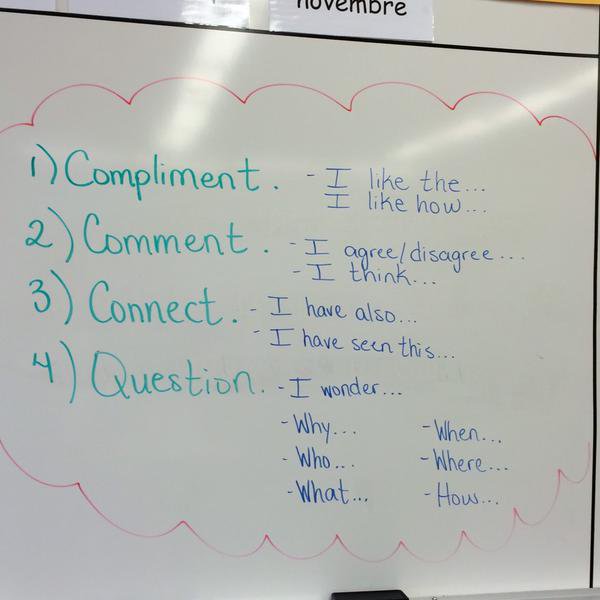 novembre
1) Compliment. - I like the...
I like how...
2) Comment. - I agree/disagree...
- I think...
3) Connect. - I have also...
- I have seen this...
4) Question. - I wonder...
- Why... - When...
- Who... - Where...
- What... - How...